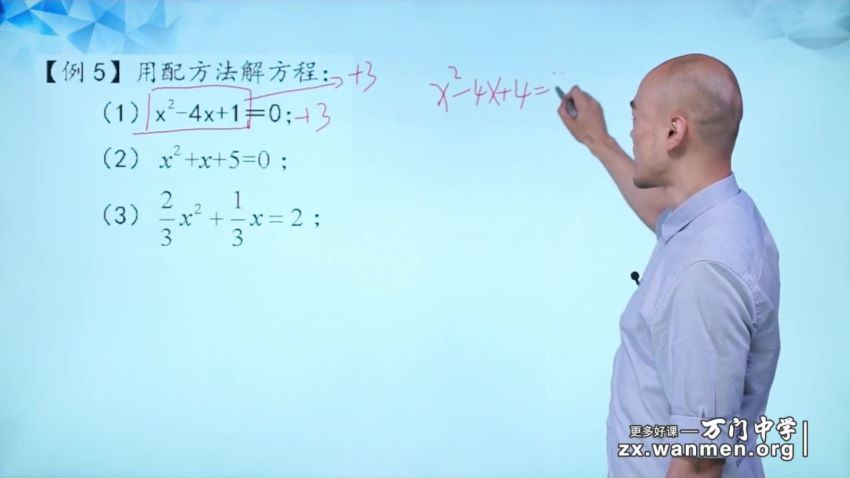 【例5】用配方法解方程: +3
(1) x²-4x+1=0; +3
x²-4x+4=
(2) x²+x+5=0 ;
(3) 2/3 x² + 1/3 x = 2 ;
更多好课—万门中学
zx.wanmen.org